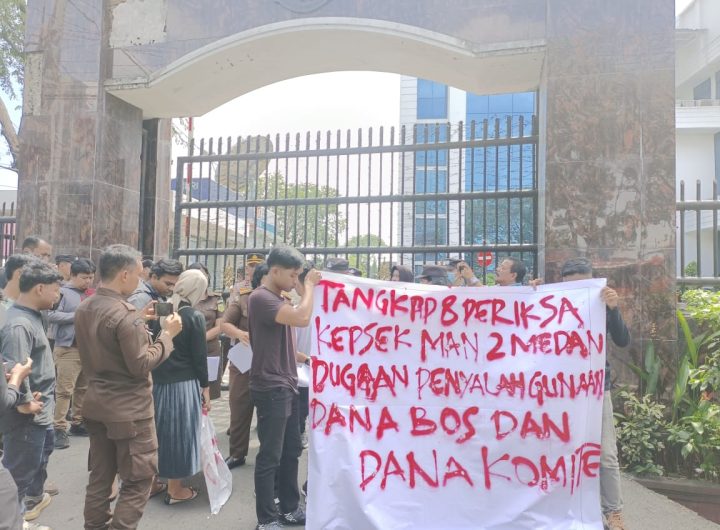 TANGKAP & PERIKSA
KEPSEK MAN 2 MEDAN
DUGAAN PENYALAHGUNAAN
DANA BOS DAN
DANA KOMITE